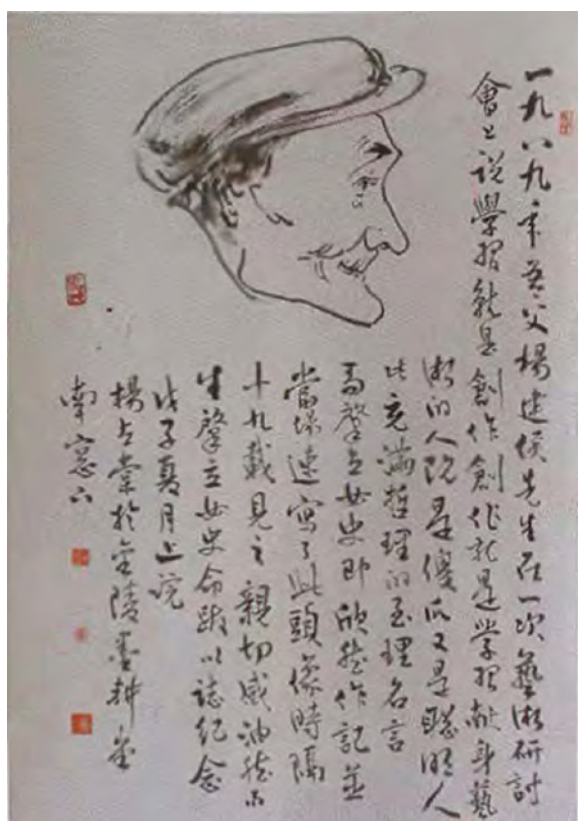 一九八九年吾父楊建侯先生在一次藝術研討
會上說學習就是創作創作就是學習獻身藝
術的人既是傻瓜又是聰明人
此充滿哲理的至理名言
馬肇立女史即欣然作記並
當場速寫了此頭像時隔
十九載見之親切感油然而
生肇立女史命跋以誌紀念
戊子夏月上浣
楊棠於金陵墨耕堂
南窗下